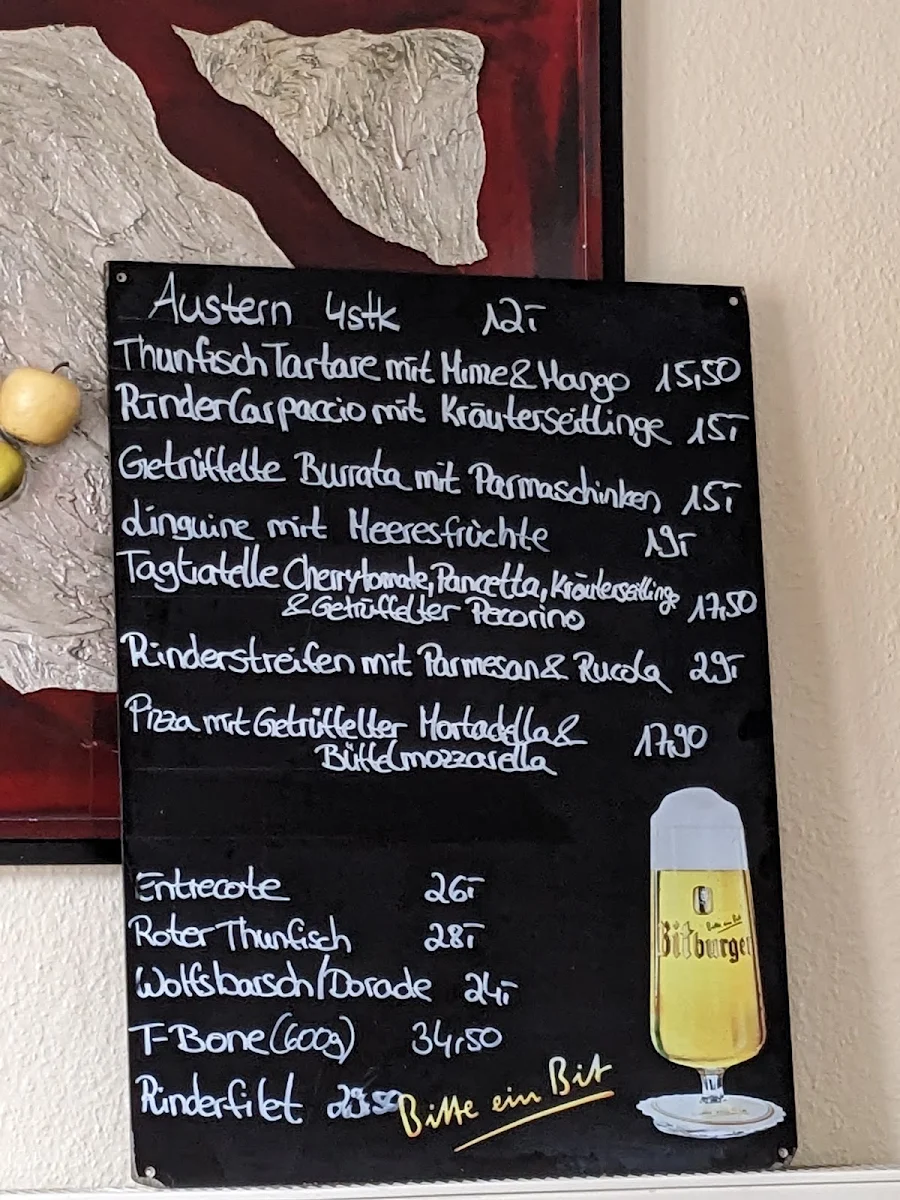 Austern 4stk 12,-
Thunfisch Tartare mit Mime & Mango 15,50
Rinder Carpaccio mit Kräuterseitlinge 15,-
Getrüffelte Burrata mit Parmaschinken 15,-
Linguine mit Meeresfrüchte 19,-
Tagliatelle Cherrytomate, Pancetta, Kräuterseitlinge
& Getrüffelter Pecorino 17,50
Rinderstreifen mit Parmesan & Rucola 29,-
Pizza mit Getrüffelter Mortadella &
Büffelmozzarella 17,90
Entrecote 26,-
Roter Thunfisch 28,-
Wolfsbarsch/Dorade 24,-
T-Bone (600g) 34,50
Rinderfilet
Bitte ein Bit
Bitte ein Bit
Bitburger